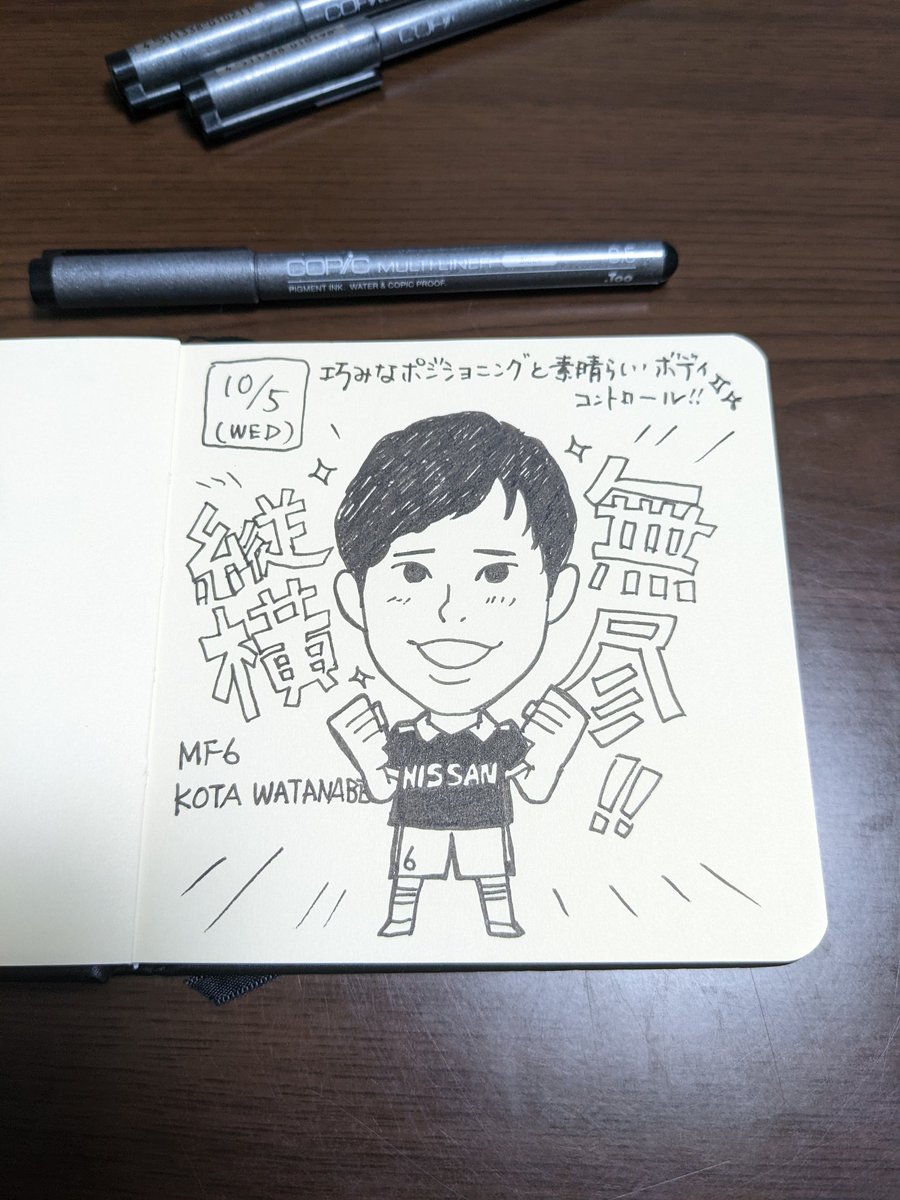 COPIC
COPIC
COPIC MULTI LINER 0.5
PIGMENT INK. WATER & COPIC PROOF. .Too
10/5
(WED)
巧みなポジショニングと素晴らしいボディ
コントロール!!
縦
横
無
尽
!!
MF6
KOTA WATANABE
NISSAN
6